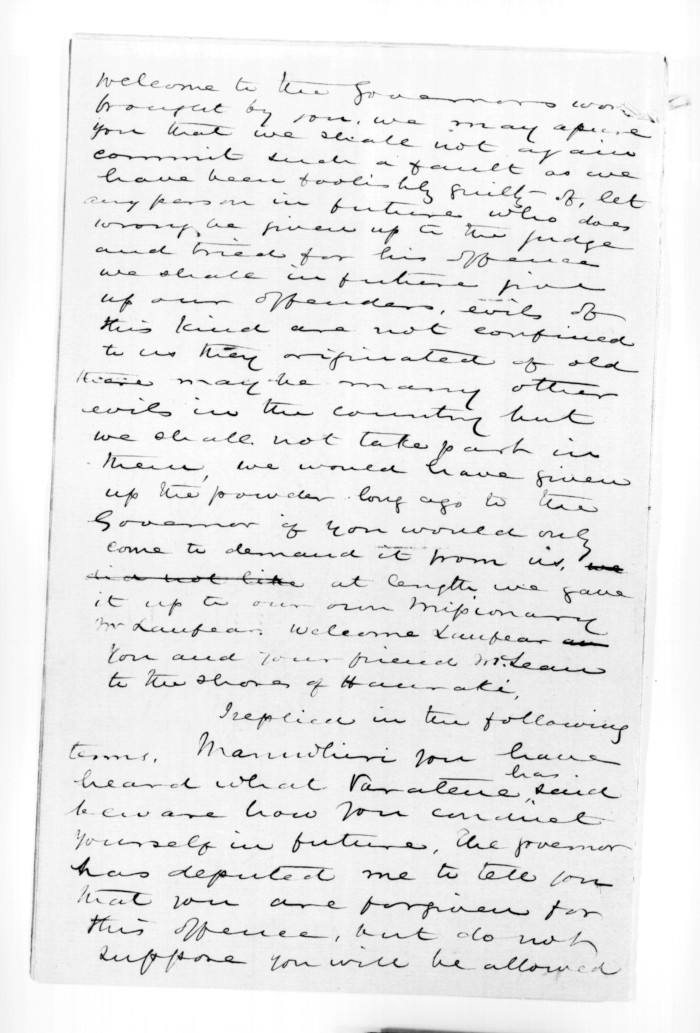 welcome to the Governors word
brought by you, we may assure
you that we shall not again
commit such a fault as we
have been foolishly guilty of, let
any person in future who does
wrong be given up to the judge
and tried for his offence
we shall in future give
up our offenders, evils of
this kind are not confined
to us they originated of old
there may be many other
evils in the country but
we shall not take part in
them, we would have given
up the powder long ago to the
Governor if you would only
come to demand it from us, we
did not like at length we gave
it up to our own Missionary
Mr Lanfear. Welcome Lanfear an
you and your friend Mr. Lean
to the shores of Hauraki,
I replied in the following
terms. you have
has
heard what Taratene, said
beware how you conduct
yourself in future, The governor
has deputed me to tell you
that you are forgiven for
this offence, but do not
suppose you will be allowed